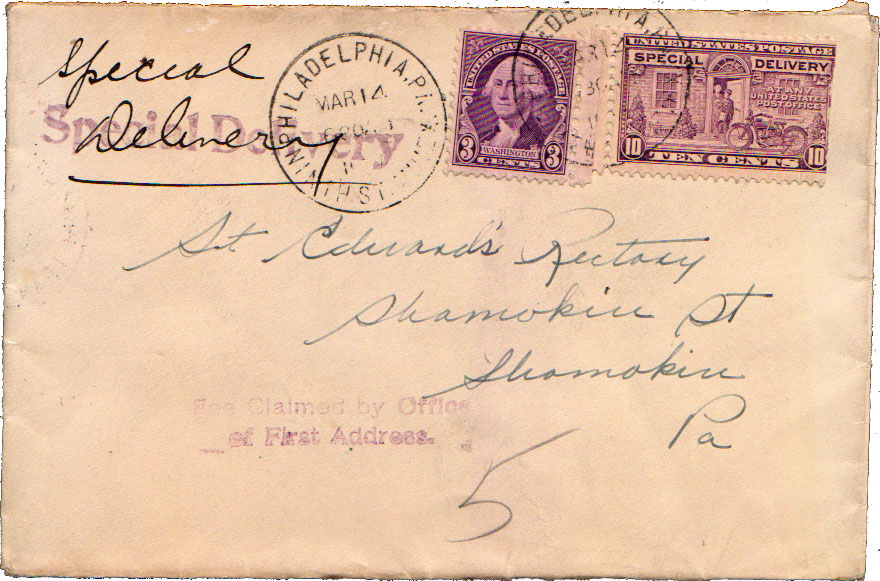 Special
Delivery
Special Delivery
PHILADELPHIA, PA.
MAR 14
NINTH ST.
UNITED STATES POSTAGE
3 WASHINGTON 3
CENTS
MAR 14
UNITED STATES POSTAGE
SPECIAL DELIVERY
AT ANY
UNITED STATES
POST OFFICE
10 TEN CENTS 10
St Edward's Rectory
Shamokin St
Shamokin
Pa
Fee Claimed by Office
of First Address.
5